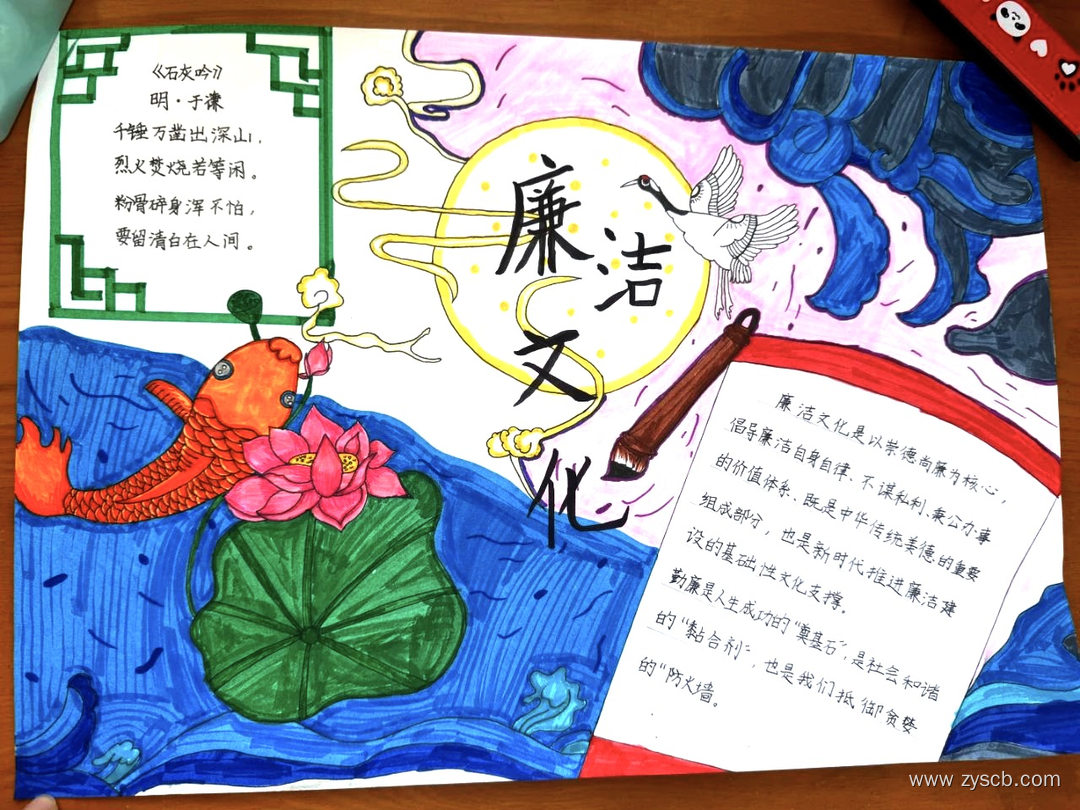 《石灰吟》
明·于谦
千锤万凿出深山，
烈火焚烧若等闲。
粉骨碎身浑不怕，
要留清白在人间。
廉洁文化
廉洁文化是以崇德尚廉为核心，
倡导廉洁自身自律、不谋私利、秉公办事
的价值体系、既是中华传统美德的重要
组成部分，也是新时代推进廉洁建
设的基础性文化支撑。
勤廉是人生成功的“奠基石”，是社会和谐
的“黏合剂”，也是我们抵御贪婪
的“防火墙。
www.zyscb.com